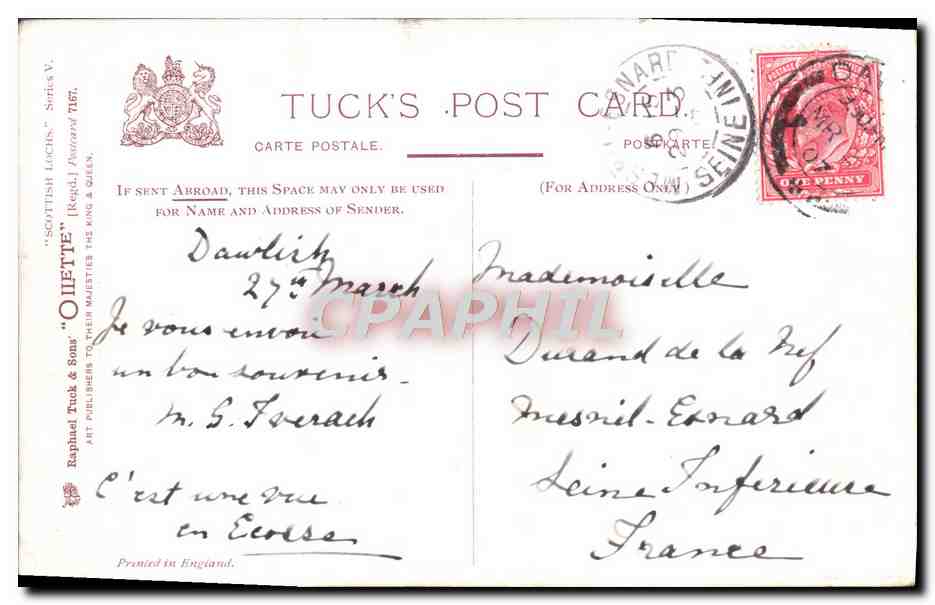 "SCOTTISH LOCHS." Series V.
Raphael Tuck & Sons' "OILETTE" [Regd.] Postcard 7167.
ART PUBLISHERS TO THEIR MAJESTIES THE KING & QUEEN.
TUCK'S POST CARD.
CARTE POSTALE. POSTKARTE.
IF SENT ABROAD, THIS SPACE MAY ONLY BE USED
FOR NAME AND ADDRESS OF SENDER.
(FOR ADDRESS ONLY)
POSTAGE
ONE PENNY
SEINE INF
MR
07
Dawlish
27th March
Je vous envoie
un bon souvenir.
M. G. Iverach
C'est une vue
en Ecosse
Printed in England.
Mademoiselle
Durand de la Nef
Mesnil-Esnard
Seine Inferieure
France
CPAPHIL